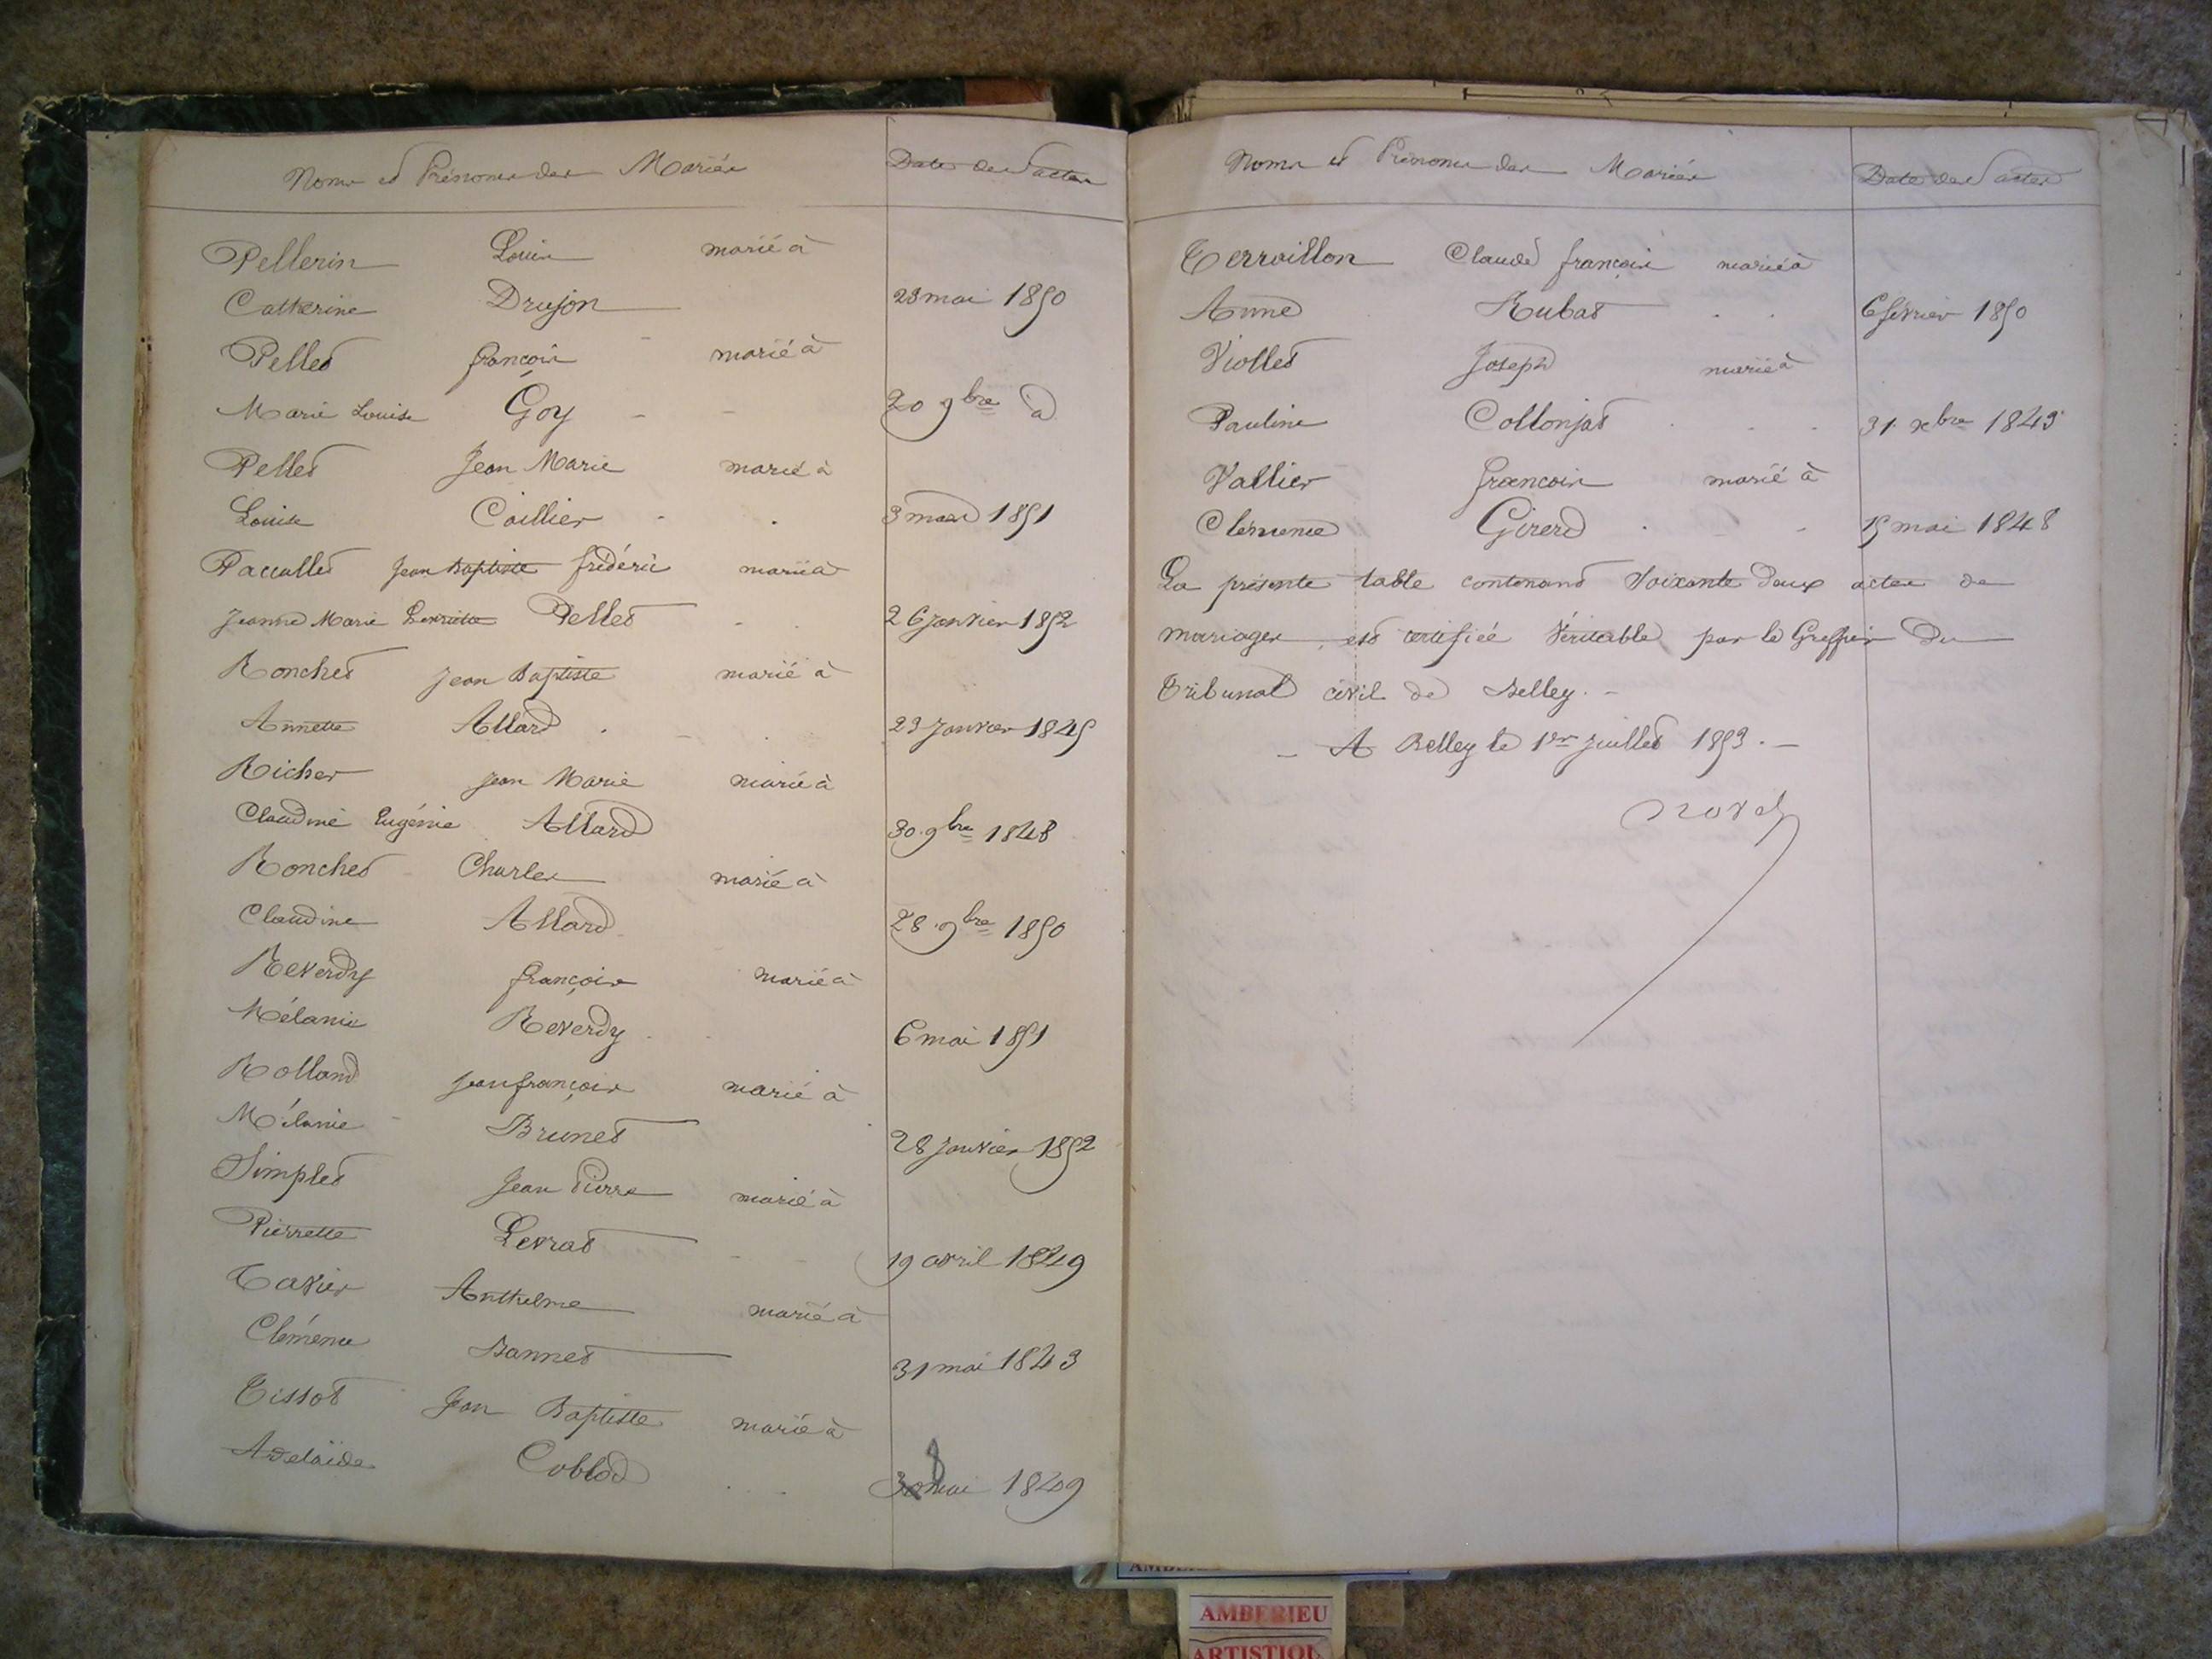 Noms et Prénoms des Mariés Date des actes
Pellerin Louis marié à
Catherine Drujon 28 mai 1850
Pellet françois marié à
Marie Louise Goy 20 9bre d
Pellet Jean Marie marié à
Louise Caillier 3 mars 1851
Paccallet Jean Baptiste frédéric marié à
Jeanne Marie Pellet 26 janvier 1852
Ronchet Jean Baptiste marié à
Annette Allard 23 Janvier 1845
Richer Jean Marie marié à
Claudine Eugénie Allard 30 9bre 1848
Ronchet Charles marié à
Claudine Allard 28 9bre 1850
Reverdy françois marié à
Mélanie Reverdy 6 mai 1851
Rolland Jean françois marié à
Mélanie Brunet 28 Janvier 1852
Simplet Jean Pierre marié à
Pierrette Levrat 19 avril 1849
Tavier Anthelme marié à
Clémence Bannet 31 mai 1843
Tissot Jean Baptiste marié à
Adelaïde Coblod mai 1849
Noms et Prénoms des Mariés Date des actes
Terraillon Claude françois marié à
Anne Rubat 6 février 1850
Viollet Joseph marié à
Pauline Collonjat 31 xbre 1849
Vallier françois marié à
Clémence Girerd 15 mai 1848
La présente table contenant Soixante deux actes de
mariages, est certifiée Véritable par le Greffier du
Tribunal civil de Belley. -
- A Belley le 1er juillet 1853. -
AMBERIEU
ARTISTIQU